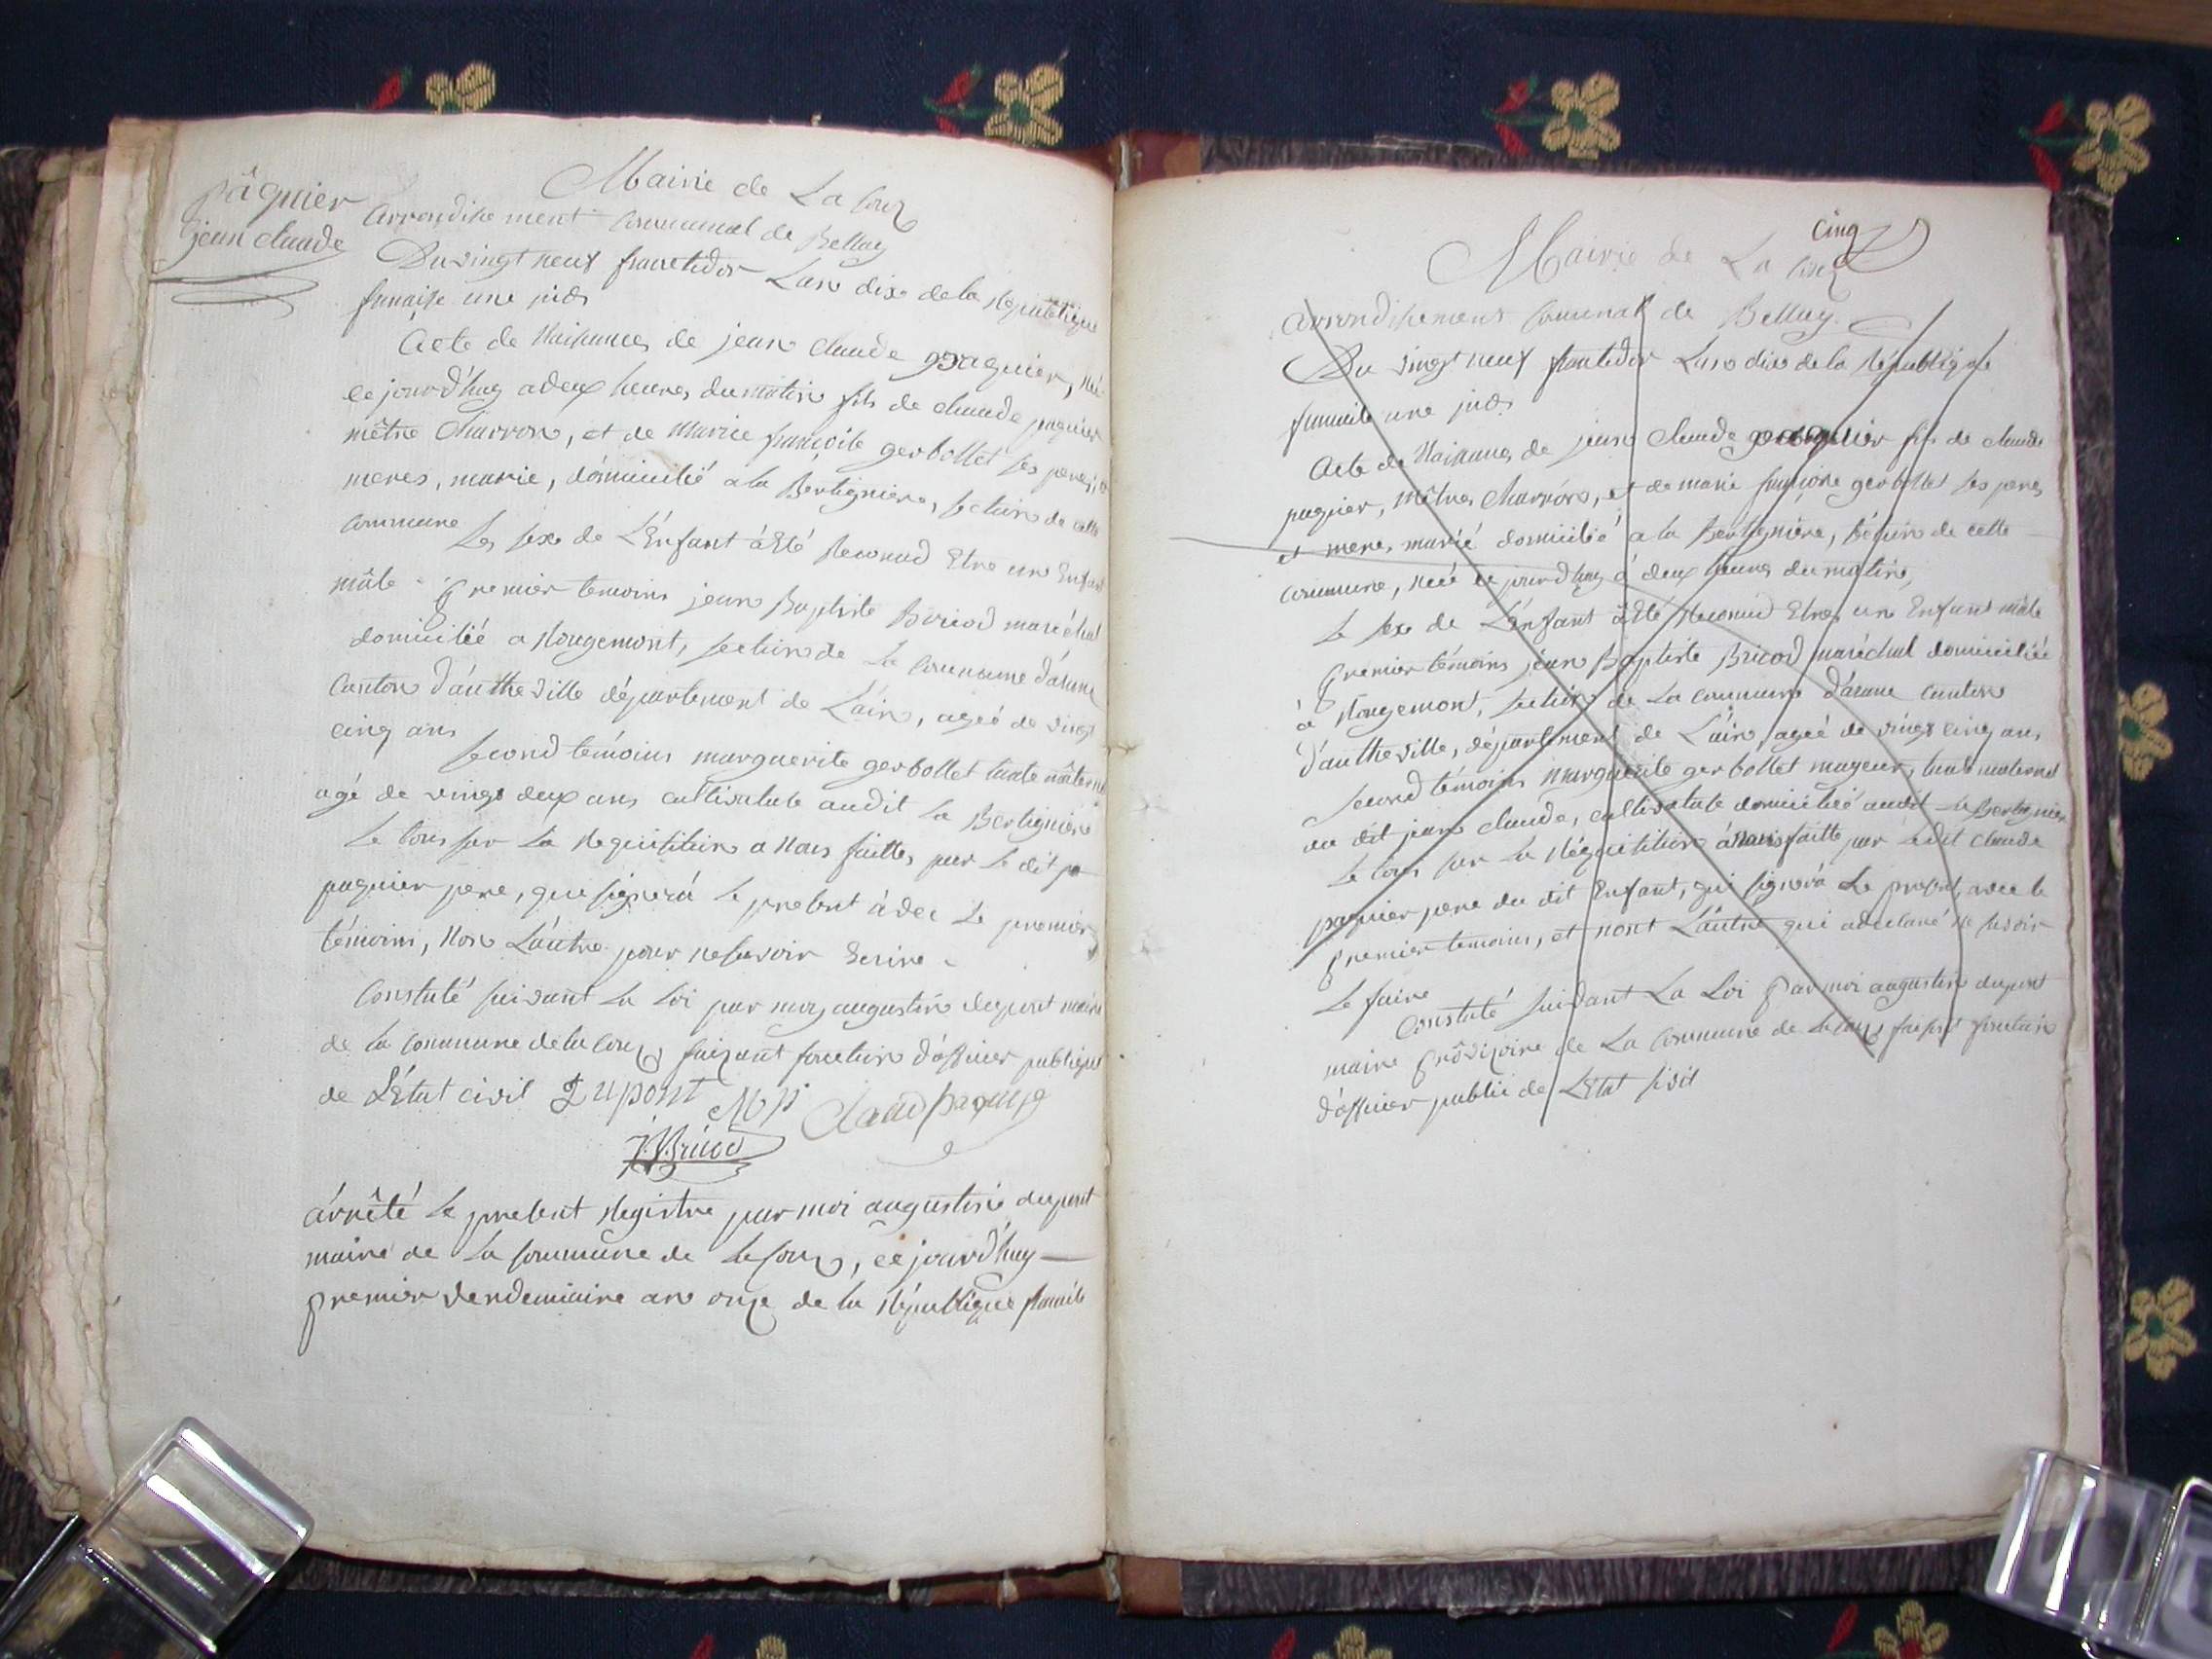 pâquier
jean claude
Mairie de La Coux
Arrondissement Communal de Belley
Du vingt neuf fructidor Lan dix de la République
francaise une
Acte de Naissances de jean claude paquier, né
ce jourd'huy a deux heures du matin fils de claude paquier
mêtre Charron, et de Marie françoise gerbollet ses peres, et
meres, marié, domicilié a la Bertignieres, section de cette
commune
Le sexe de L'Enfant à Eté Reconud Etre un Enfant
mâle - premier temoins jean Baptiste Bricod maréchal
domicilié a Rougemont, section de La Commune d'aranc
Canton d'autheville département de L'ain, ageé de vingt
cinq ans
second temoins marguerite gerbollet tante mâternel
agé de vingt deux ans cultivatute audit La Bertigniere
Le tous sur La Requisition a Nous faittes par Le dit pa
paquier pere, que signerà Le present àvec Le premier
témoins, Non L'autre pour ne savoir Ecrire -
Constaté suivant La Loi par moy augustin dupont maire
de la Commune de la Coux, faizant fonction d'officier publique
de L'Etat civil Dupont claud paquie
J B Bricod
árrêté Le present Registre par moi augustin dupont
maire de La Commune de La Coux, ce jourd'huy —
premier vendemiaire an onze de la République francaise
cinq
Mairie de La Coux
Arrondissement Comunal de Belley
Du vingt neuf fructidor Lan dix de la République
francaise une
Acte de Naissances de jean claude paquier fils de claude
paquier, mêtres Charrons, et de marie françoise gerbollet ses peres
et meres marié domicilié a la Bertigniere, séction de cette
commune, neé ce jourd'huy à deux heures du matin,
Le sexe de L'énfant à Eté Reconud Etre un Enfant mâle
premier témoins jean Baptiste Bricod maréchal domiciliéé
à Rougemont, section de La commune d'aranc canton
d'autheville, département de L'ain, ageé de vingt cinq ans
second témoins marguerite gerbollet mayeur, tante maternel
au dit jean claude, cultivatute domicilié audit La Bertignier
Le tous sur La Réquisition à nous faitte par Ledit claude
paquier pere du dit Enfant, qui signerà Le present avec le
premier temoins, et nont L'autre qui a declaré ne savoir
Le faire
Constaté suivant La Loi par moi augustin dupont
maire provizoire de La Commune de La Coux faisant fonction
d'officier public de L'Etat sivil